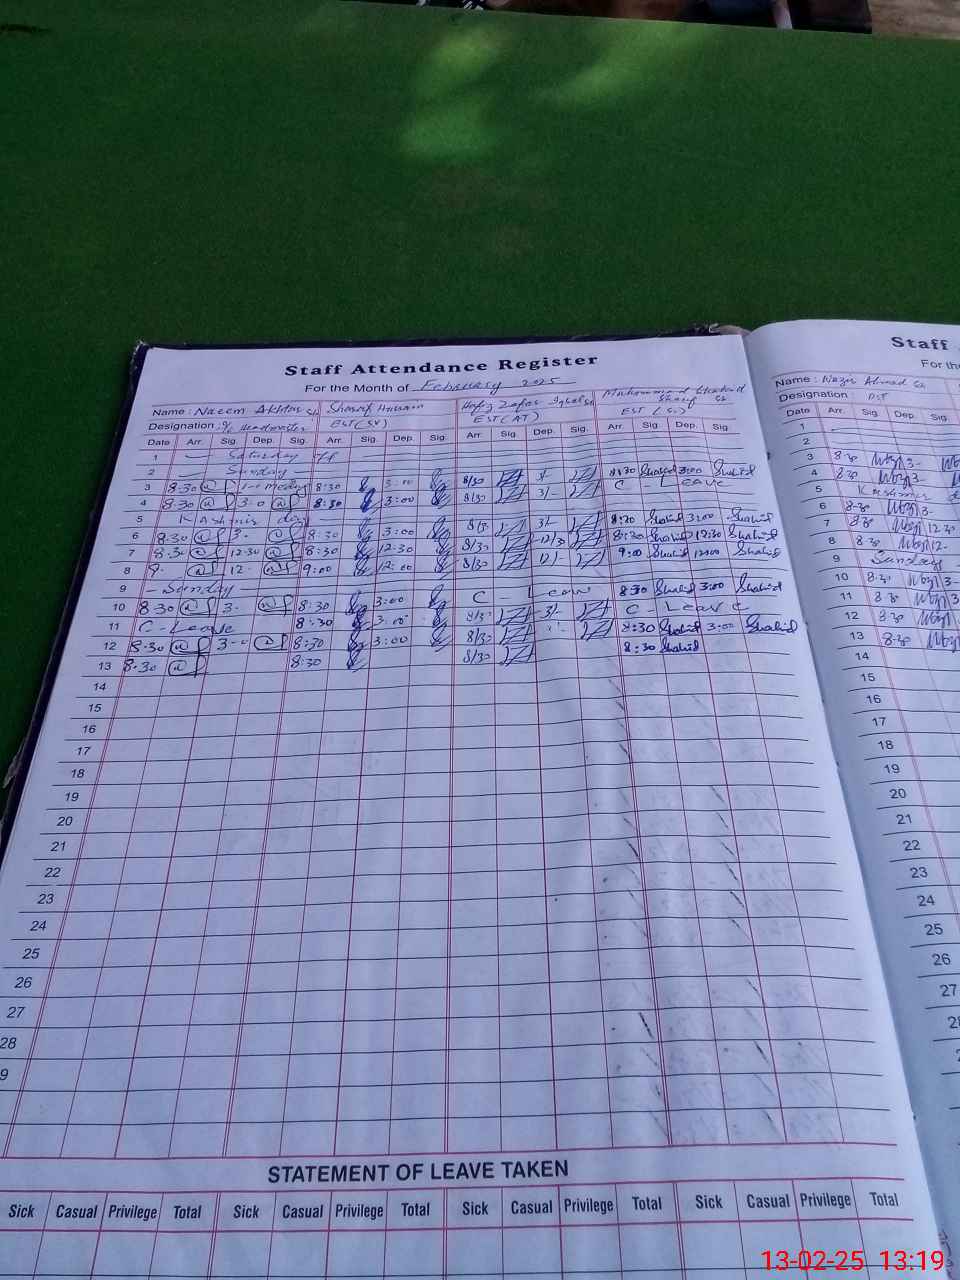 Staff Attendance Register
For the Month of February 2025
Name : Naeem Akhtar Sharif Hussain Hafiz Zafar Iqbal Muhammad Shahid Sharif
Designation : I/c Headmaster EST (SV) EST (AT) EST (Sc)
Date Arr. Sig. Dep. Sig. Arr. Sig. Dep. Sig. Arr. Sig. Dep. Sig. Arr. Sig. Dep. Sig.
1 Saturday off
2 Sunday
3 8:30 8:30 3:00 8/30 3/- 8:30 Shahid 3:00 Shahid
4 8:30 3-0 8:30 3:00 8/30 3/- C - Leave
5 Kashmir day
6 8:30 3- 8:30 3:00 8/30 3/- 8:30 Shahid 3:00 Shahid
7 8:30 12:30 8:30 12:30 8/30 12/30 8:30 Shahid 12:30 Shahid
8 9- 12- 9:00 12:00 8/30 12/- 9:00 Shahid 12:00 Shahid
9 - Sunday -
10 8:30 3- 8:30 3:00 C - Leave 8:30 Shahid 3:00 Shahid
11 C - Leave 8:30 3:00 8/30 3/- C - Leave
12 8:30 3-0 8:30 3:00 8/30 8:30 Shahid 3:00 Shahid
13 8:30 8:30 8/30 8:30 Shahid
14
15
16
17
18
19
20
21
22
23
24
25
26
27
28
9
STATEMENT OF LEAVE TAKEN
Sick Casual Privilege Total Sick Casual Privilege Total Sick Casual Privilege Total Sick Casual Privilege Total
Staff
For the
Name : Nazir Ahmad
Designation : PST
Date Arr. Sig. Dep. Sig.
1
2
3 8:30 3-
4 8:30 3-
5 Kashmir
6 8:30 3-
7 8:30 12:30
8 8:30 12-
9 Sunday
10 8:30 3-
11 8:30
12 8:30
13 8:30
14
15
16
17
18
19
20
21
22
23
24
25
26
27
28
13-02-25 13:19